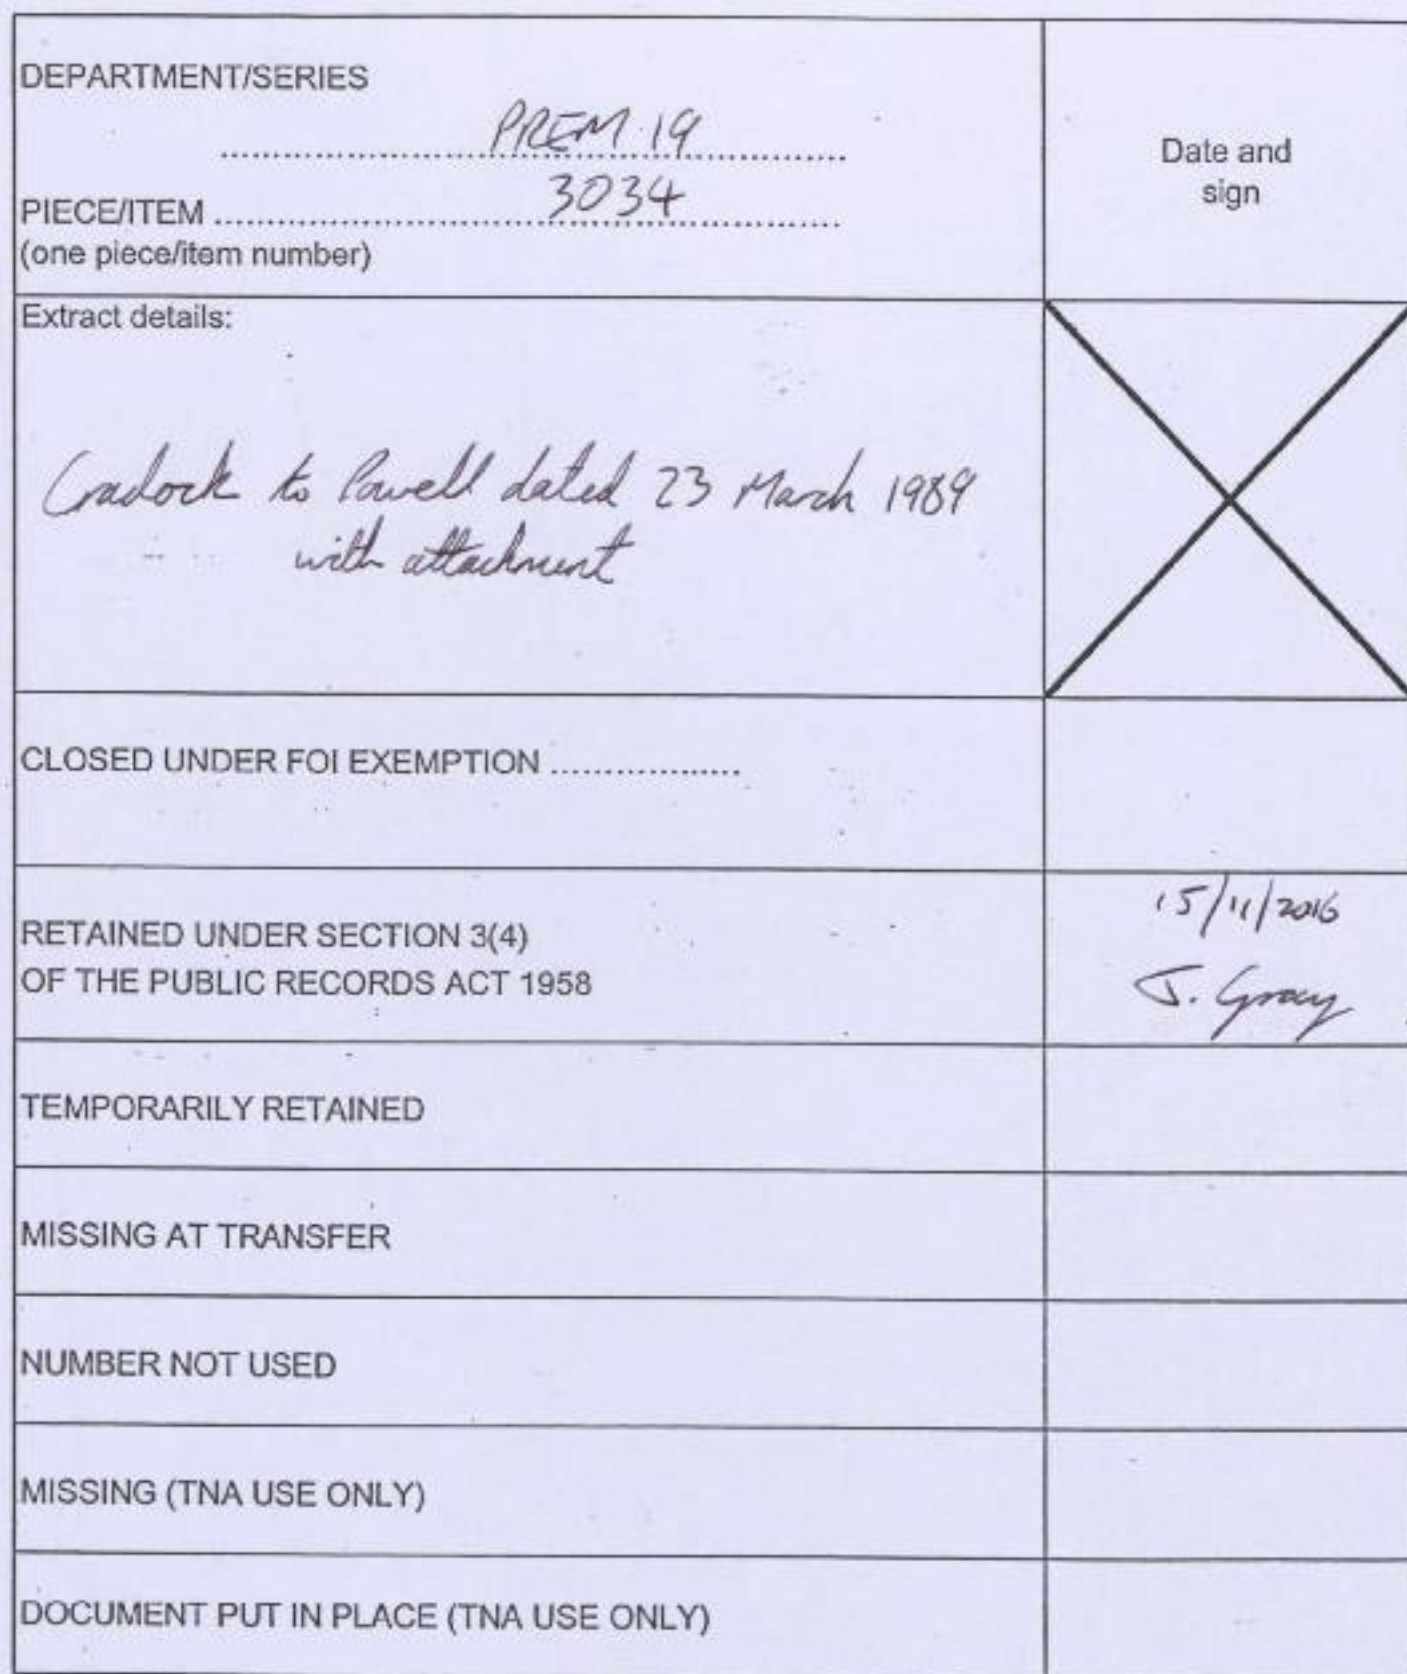 DEPARTMENT/SERIES
PREM 19
Date and
sign
PIECE/ITEM
3034
(one piece/item number)
Extract details:
Cradock to Powell dated 23 March 1989
with attachment
CLOSED UNDER FOI EXEMPTION
RETAINED UNDER SECTION 3(4)
OF THE PUBLIC RECORDS ACT 1958
15/11/2016
J. Gray
TEMPORARILY RETAINED
MISSING AT TRANSFER
NUMBER NOT USED
MISSING (TNA USE ONLY)
DOCUMENT PUT IN PLACE (TNA USE ONLY)